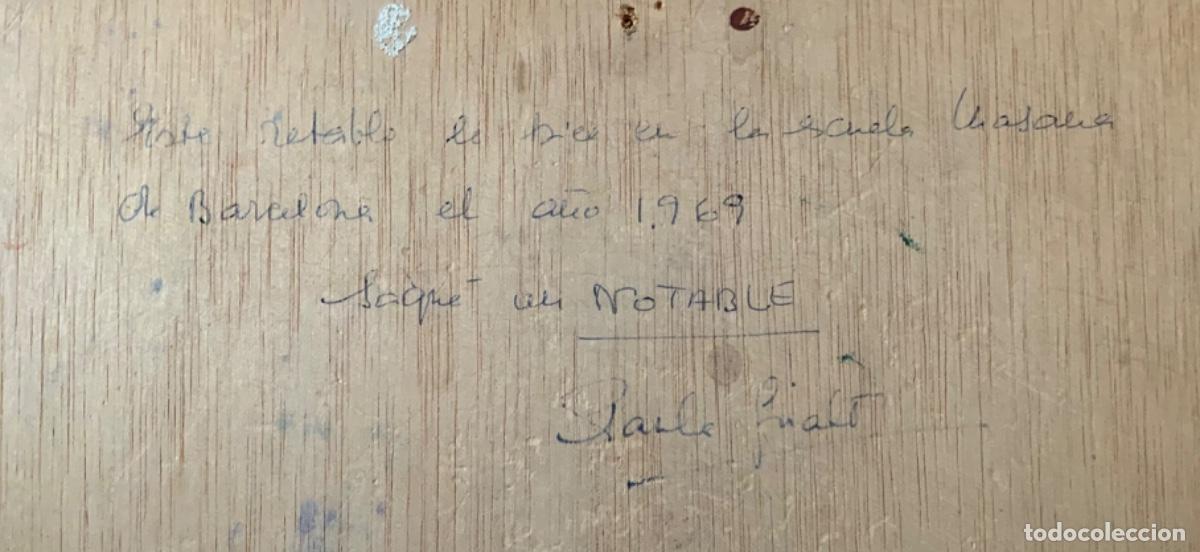 Este retablo lo hice en la escuela Masana
de Barcelona el año 1.969
Saqué un NOTABLE
todocoleccion